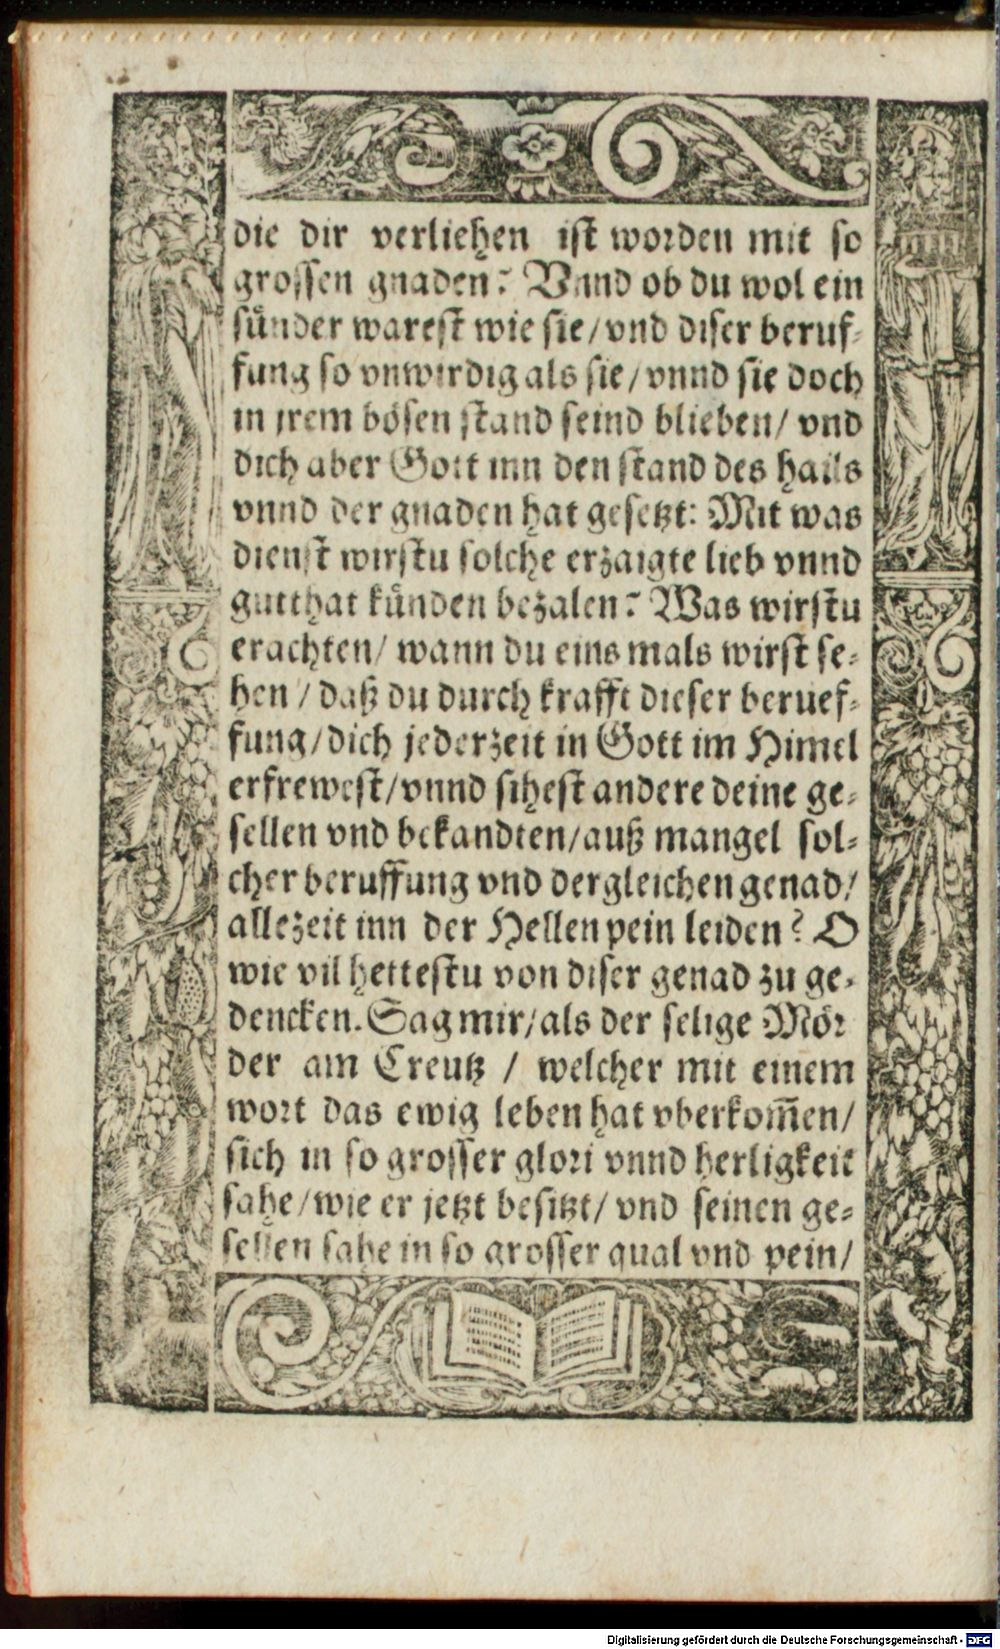 die dir verliehen ist worden mit so
grossen gnaden? Vnnd ob du wol ein
sünder warest wie sie/ vnd diser beruf-
fung so vnwirdig als sie/ vnnd sie doch
in jrem bösen stand seind blieben/ vnd
dich aber Gott inn den stand des hails
vnnd der gnaden hat gesetzt: Mit was
dienst wirstu solche erzaigte lieb vnnd
gutthat künden bezalen? Was wirstu
erachten/ wann du eins mals wirst se-
hen / daß du durch krafft dieser beruef-
fung/ dich jederzeit in Gott im Himel
erfrewest/ vnnd sihest andere deine ge-
sellen vnd bekandten/ auß mangel sol-
cher beruffung vnd dergleichen genad/
allezeit inn der Hellen pein leiden? O
wie vil hettestu von diser genad zu ge-
dencken. Sag mir/ als der selige Mör
der am Creutz / welcher mit einem
wort das ewig leben hat vberkom̃en/
sich in so grosser glori vnnd herligkeit
sahe/ wie er jetzt besitzt/ vnd seinen ge-
sellen sahe in so grosser qual vnd pein/
Digitalisierung gefördert durch die Deutsche Forschungsgemeinschaft - DFG